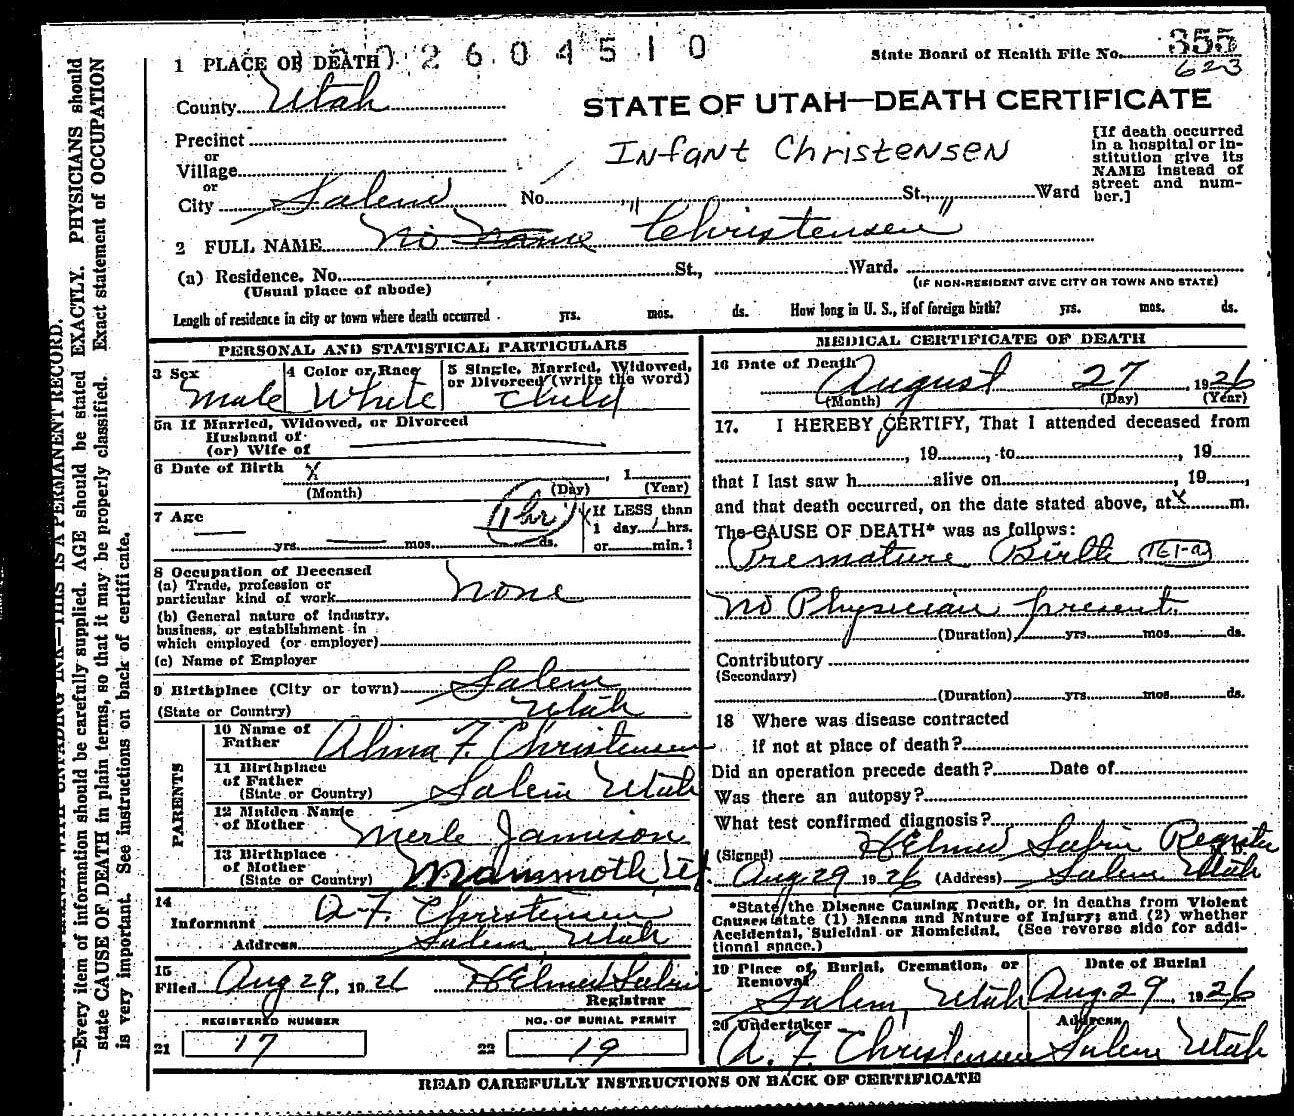 2 6 0 4 5 1 0
State Board of Health File No. 355
623
1 PLACE OF DEATH
County Utah
STATE OF UTAH—DEATH CERTIFICATE
Precinct
or
Village
or
City Salem No. St., Ward
Infant Christensen
[If death occurred
in a hospital or in-
stitution give its
NAME instead of
street and num-
ber.]
2 FULL NAME No Name "Christensen"
(a) Residence. No. St., Ward.
(Usual place of abode) (IF NON-RESIDENT GIVE CITY OR TOWN AND STATE)
Length of residence in city or town where death occurred yrs. mos. ds. How long in U. S., if of foreign birth? yrs. mos. ds.
PERSONAL AND STATISTICAL PARTICULARS
3 Sex 4 Color or Race 5 Single, Married, Widowed,
or Divorced (write the word)
Male White Child
5a If Married, Widowed, or Divorced
Husband of
(or) Wife of
6 Date of Birth X , 1
(Month) (Day) (Year)
7 Age 1 hr If LESS than
1 day 1 hrs.
yrs. mos. ds. or min.?
8 Occupation of Deceased
(a) Trade, profession or
particular kind of work None
(b) General nature of industry,
business, or establishment in
which employed (or employer)
(c) Name of Employer
9 Birthplace (City or town) Salem
(State or Country) Utah
PARENTS
10 Name of
Father F. Christensen
11 Birthplace
of Father
(State or Country) Salem Utah
12 Maiden Name
of Mother Merle Jamison
13 Birthplace
of Mother
(State or Country) Mammoth Ut
14
Informant A. F. Christensen
Address Salem, Utah
15
Filed Aug 29, 1926
Registrar
REGISTERED NUMBER NO. OF BURIAL PERMIT
21 17 22 19
MEDICAL CERTIFICATE OF DEATH
16 Date of Death August 27, 1926
(Month) (Day) (Year)
17. I HEREBY CERTIFY, That I attended deceased from
, 19 , to , 19
that I last saw h alive on , 19 ,
and that death occurred, on the date stated above, at X m.
The CAUSE OF DEATH* was as follows:
Premature Birth 161-a
No Physician present
(Duration) yrs. mos. ds.
Contributory
(Secondary)
(Duration) yrs. mos. ds.
18 Where was disease contracted
if not at place of death?
Did an operation precede death? Date of
Was there an autopsy?
What test confirmed diagnosis?
(Signed) Register
Aug 29 1926 (Address) Salem Utah
*State the Disease Causing Death, or in deaths from Violent
Causes state (1) Means and Nature of Injury; and (2) whether
Accidental, Suicidal or Homicidal. (See reverse side for addi-
tional space.)
19 Place of Burial, Cremation, or
Removal Date of Burial
Salem, Utah Aug 29, 1926
20 Undertaker Address
A. F. Christensen Salem Utah
READ CAREFULLY INSTRUCTIONS ON BACK OF CERTIFICATE
THIS IS A PERMANENT RECORD.
—Every item of information should be carefully supplied. AGE should be stated EXACTLY. PHYSICIANS should
state CAUSE OF DEATH in plain terms, so that it may be properly classified. Exact statement of OCCUPATION
is very important. See instructions on back of certificate.